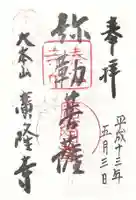 奉拝
平成十三年
五月三日
弥勒菩薩
大本山
薬隆寺